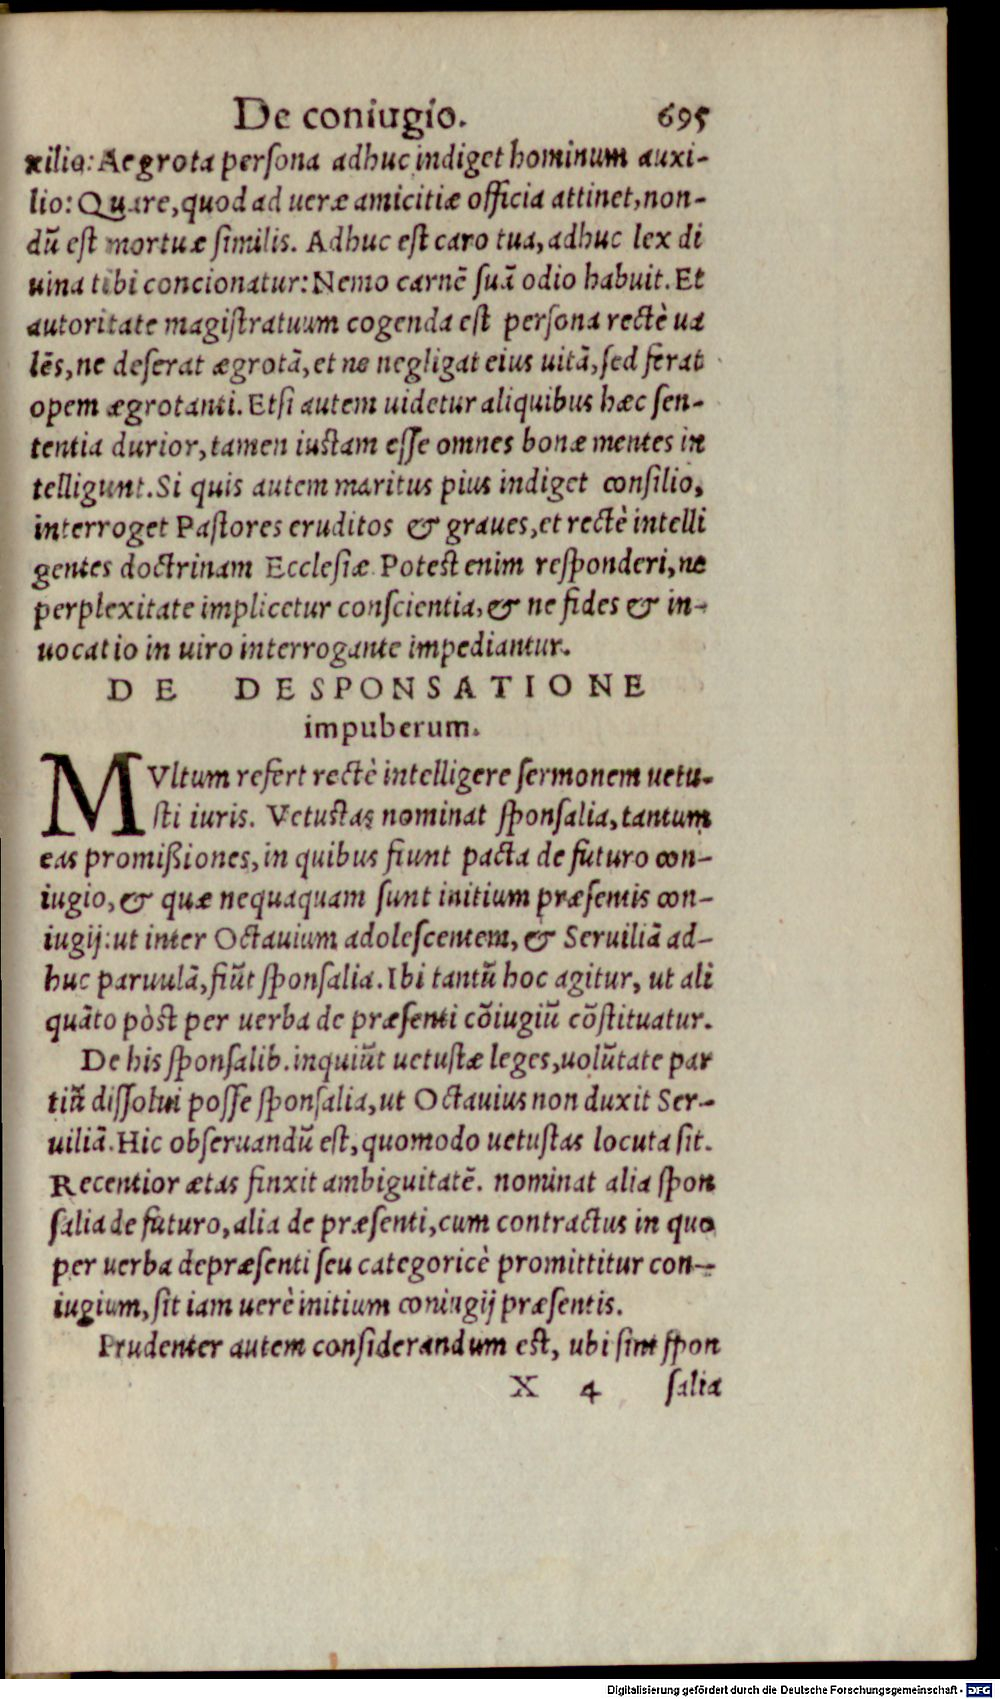 De coniugio. 695
xilio: Aegrota persona adhuc indiget hominum auxi-
lio: Quare, quod ad ueræ amicitiæ officia attinet, non-
dũ est mortuæ similis. Adhuc est caro tua, adhuc lex di
uina tibi concionatur: Nemo carnẽ suã odio habuit. Et
autoritate magistratuum cogenda est persona rectè ua
lẽs, ne deserat ægrotã, et ne negligat eius uitã, sed ferat
opem ægrotanti. Etsi autem uidetur aliquibus hæc sen-
tentia durior, tamen iustam esse omnes bonæ mentes in
telligunt. Si quis autem maritus pius indiget consilio,
interroget Pastores eruditos & graues, et rectè intelli
gentes doctrinam Ecclesiæ. Potest enim responderi, ne
perplexitate implicetur conscientia, & ne fides & in-
uocatio in uiro interrogante impediantur.
DE DESPONSATIONE
impuberum.
MVltum refert rectè intelligere sermonem uetu-
sti iuris. Vetustas nominat sponsalia, tantum
eas promißiones, in quibus fiunt pacta de futuro con-
iugio, & quæ nequaquam sunt initium præsentis con-
iugij: ut inter Octauium adolescentem, & Seruiliã ad-
huc paruulã, fiũt sponsalia. Ibi tantũ hoc agitur, ut ali
quãto pòst per uerba de præsenti cõiugiũ cõstituatur.
De his sponsalib. inquiũt uetustæ leges, uolũtate par
tiũ dissolui posse sponsalia, ut Octauius non duxit Ser-
uiliã. Hic obseruandũ est, quomodo uetustas locuta sit.
Recentior ætas finxit ambiguitatẽ. nominat alia spon
salia de futuro, alia de præsenti, cum contractus in quo
per uerba de præsenti seu categoricè promittitur con-
iugium, sit iam uerè initium coniugij præsentis.
Prudenter autem considerandum est, ubi sint spon
X 4 salia
Digitalisierung gefördert durch die Deutsche Forschungsgemeinschaft - DFG